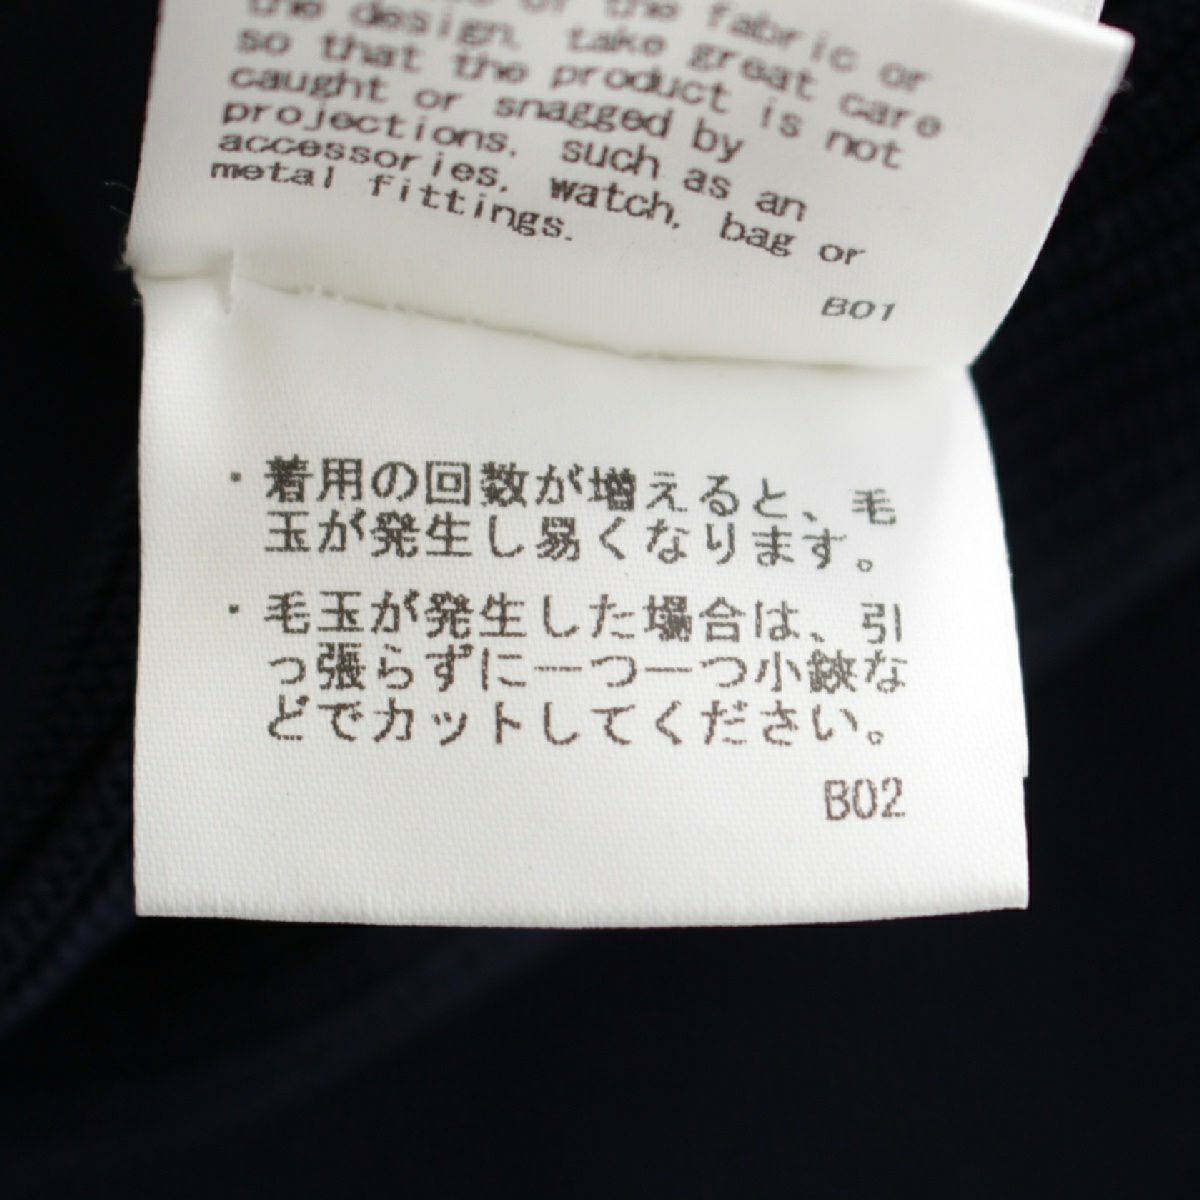 of the fabric or
the design, take great care
so that the product is not
caught or snagged by
projections, such as an
accessories, watch, bag or
metal fittings.
B01
・着用の回数が増えると、毛
玉が発生し易くなります。
・毛玉が発生した場合は、引
っ張らずに一つ一つ小鋏な
どでカットしてください。
B02